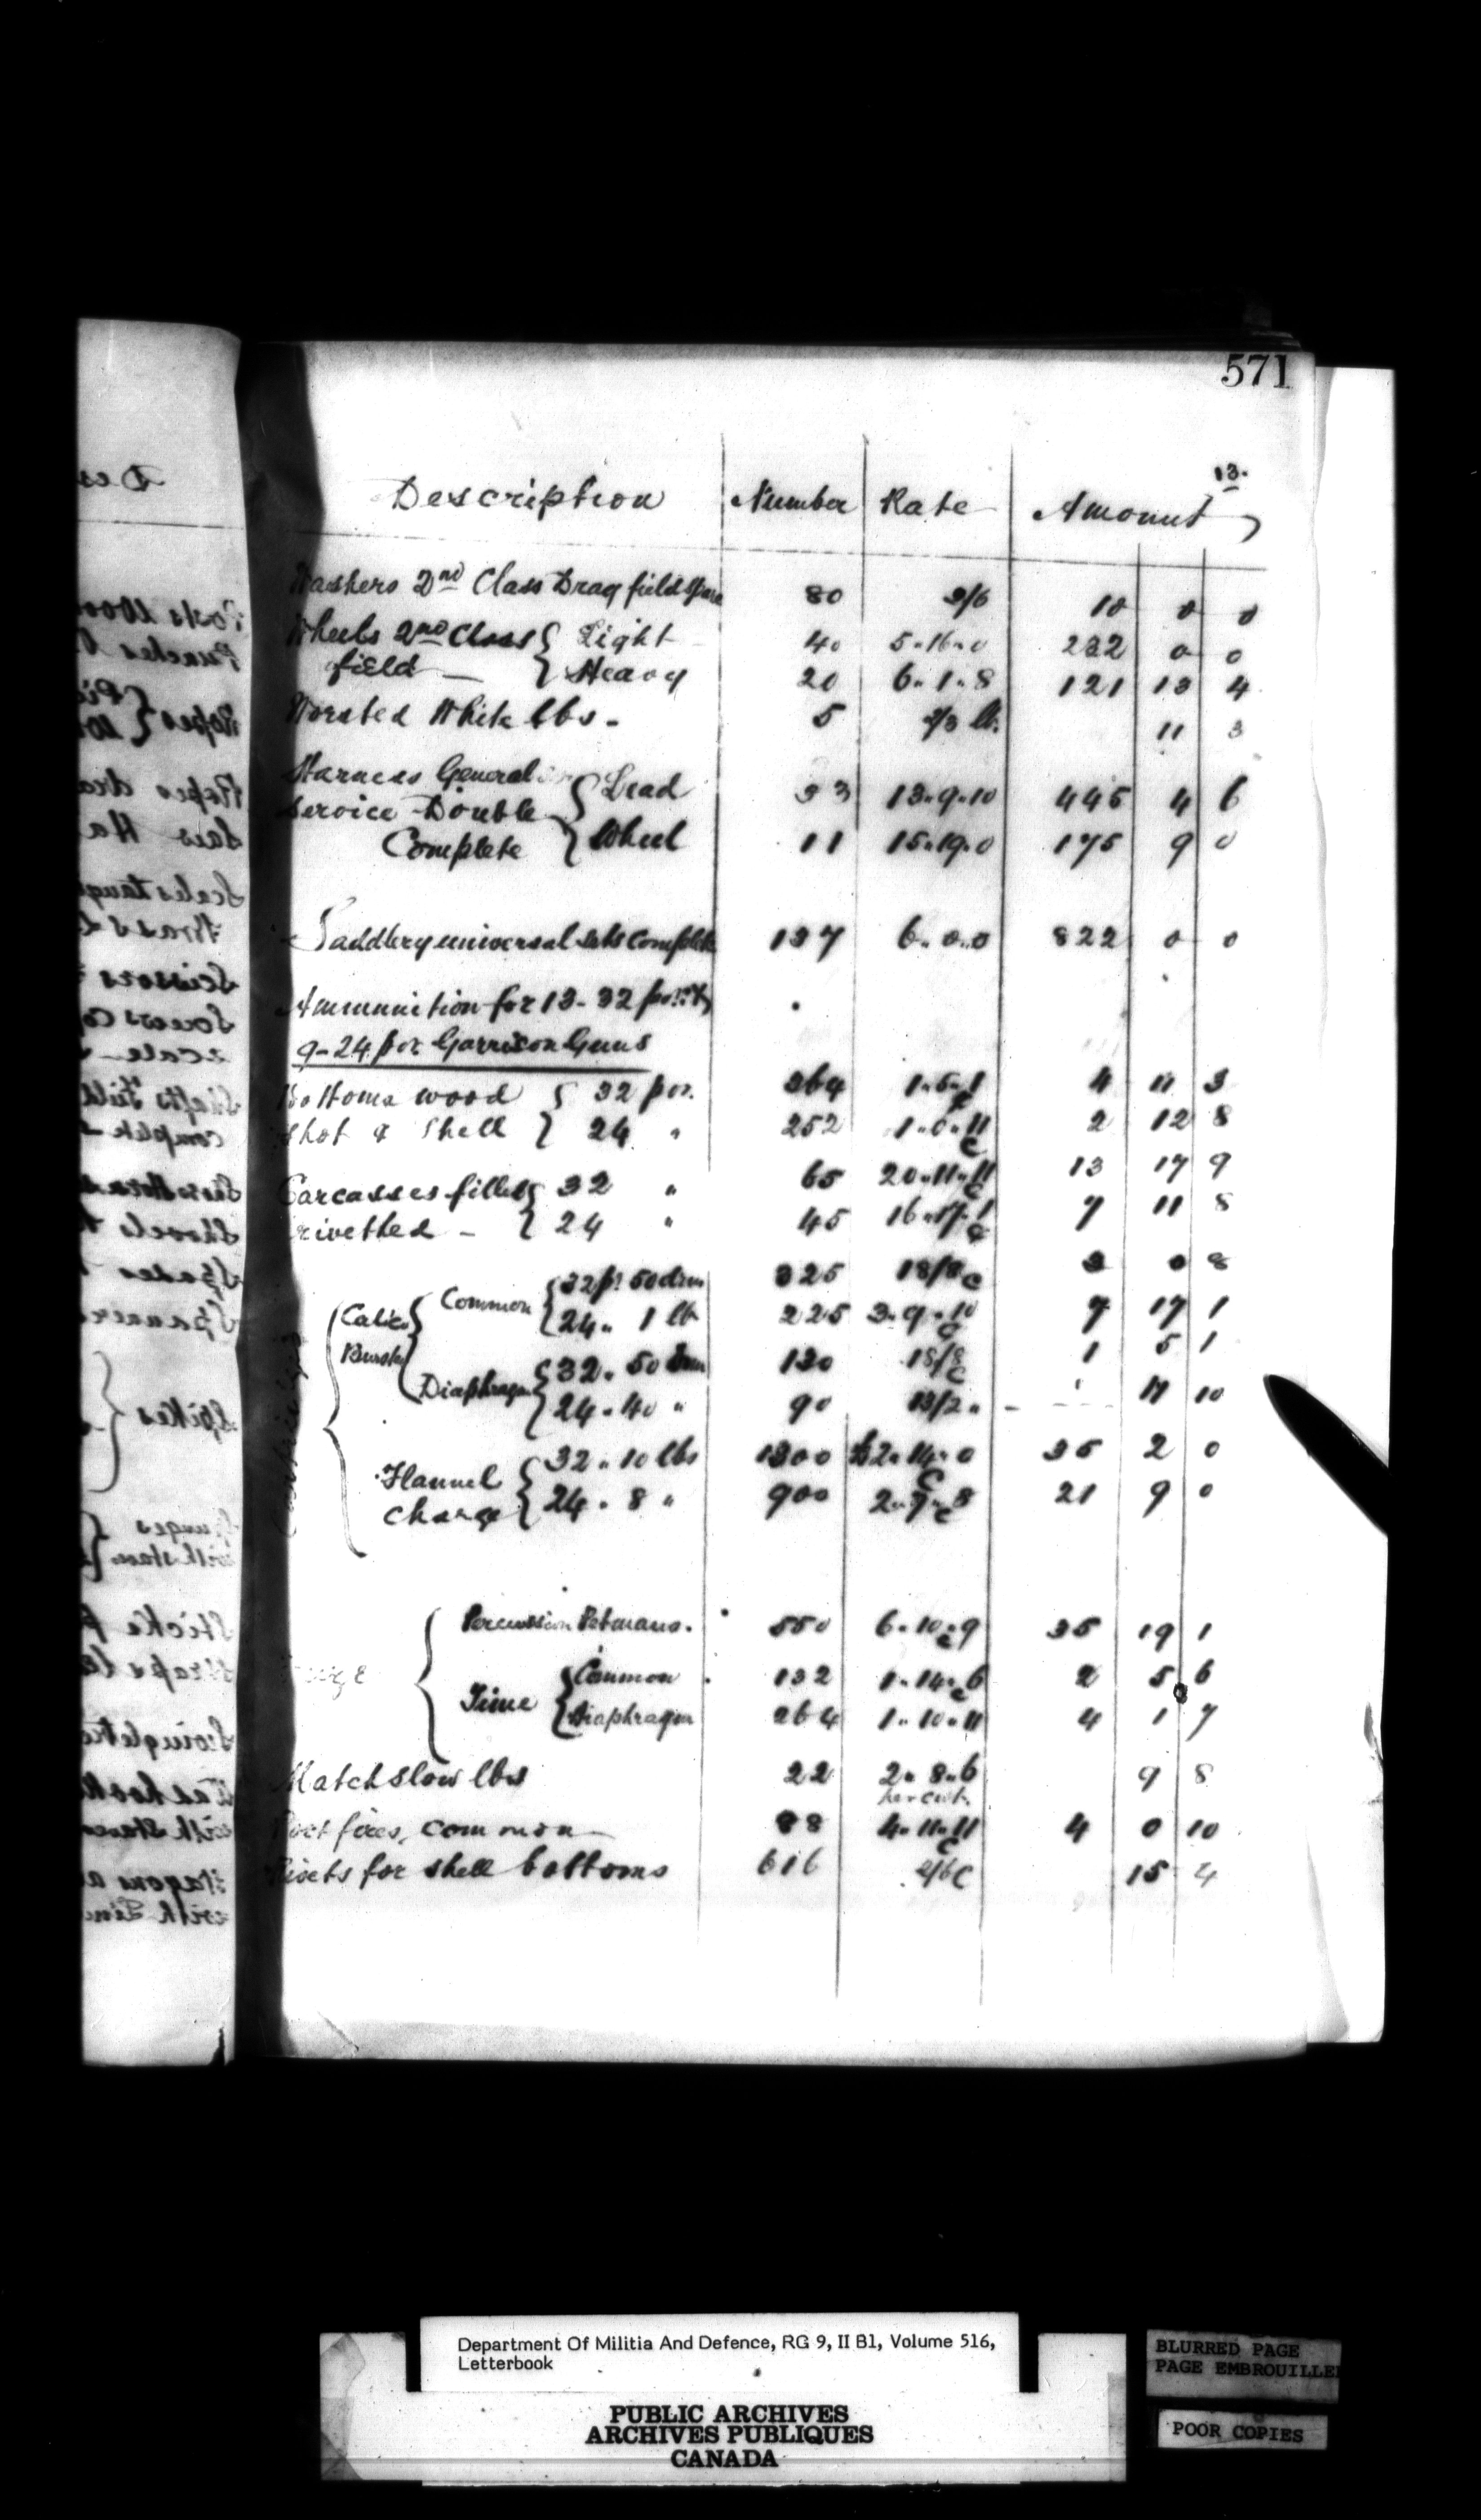 571
13.
Description Number Rate Amount
Washers 2nd Class Drag field spare 80 2/6 10 0 0
Wheels 2nd Class { Light 40 5.16.0 232 0 0
field — } Heavy 20 6.1.8 121 13 4
Worsted White lbs. 5 2/3 lb. 11 3
Harness General
Service Double { Lead 33 13.9.10 445 4 6
Complete } Wheel 11 15.19.0 175 9 0
Saddlery universal sets complete 137 6.0.0 822 0 0
Ammunition for 13-32 por. &
9-24 por Garrison Guns
Bottoms wood { 32 por. 364 1.5.1 4 11 3
Shot & Shell } 24 " 252 1.0.11 C 2 12 8
Carcasses filled { 32 " 65 20.11.11 C 13 17 9
rivetted - { 24 " 45 16.17.1 C 7 11 8
Calico Common { 32 pr 50 drm 325 18/8 C 3 0 8
Burster { 24 " 1 lb 225 3.9.10 C 7 17 1
Diaphragm { 32 " 50 drm 130 18/8 C 1 5 1
{ 24 " 40 " 90 13/2 " - - - 11 10
Flannel { 32 " 10 lbs 1300 2.14.0 C 35 2 0
Charge { 24 " 8 " 900 2.7.8 C 21 9 0
Percussion Petmans. 550 6.10.9 C 35 19 1
Time { Common 132 1.14.6 C 2 5 6
{ Diaphragm 264 1.10.11 4 1 7
Match slow lbs 22 2.8.6 9 8
per cwt.
Port fires, common — 88 4.11.11 C 4 0 10
Rivets for shell bottoms 616 2/6 C 15 4
Department Of Militia And Defence, RG 9, II B1, Volume 516,
Letterbook
PUBLIC ARCHIVES
ARCHIVES PUBLIQUES
CANADA
BLURRED PAGE
PAGE EMBROUILLE
POOR COPIES